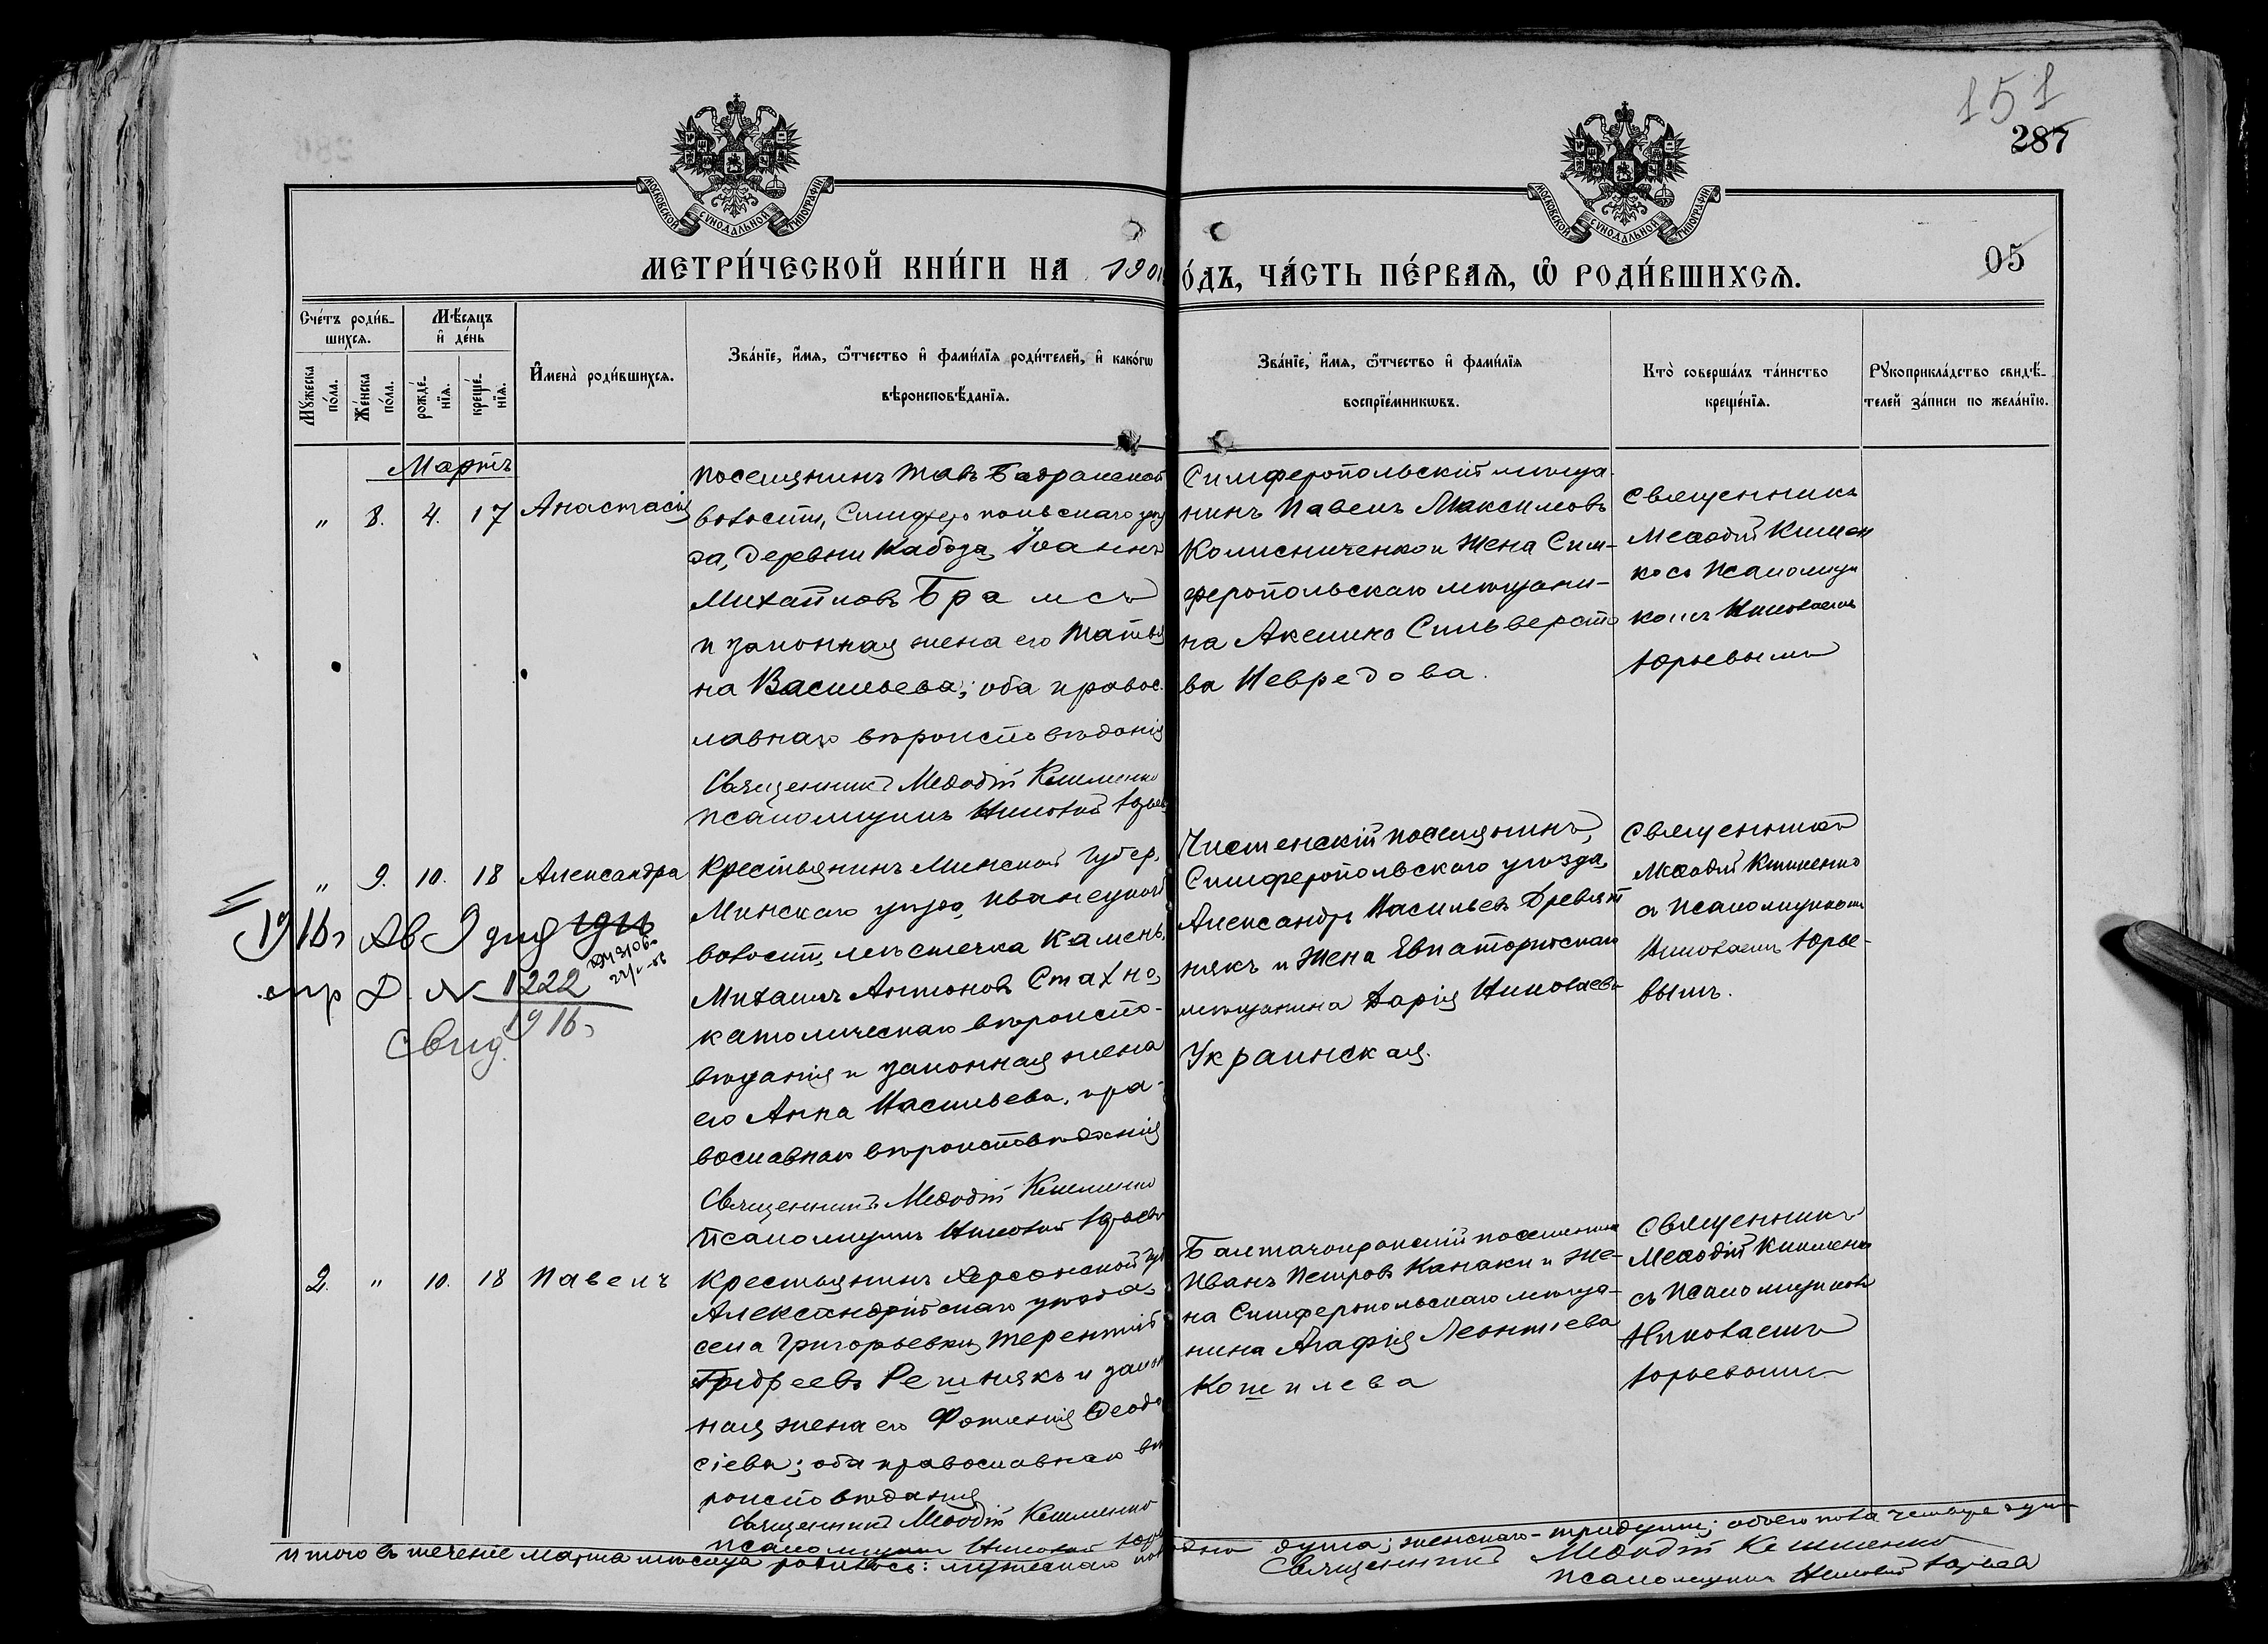 151
287
05
МОСКОВСКОЙ СѴНОДАЛЬНОЙ ТИПОГРАФІИ
МОСКОВСКОЙ СѴНОДАЛЬНОЙ ТИПОГРАФІИ
МЕТРИ́ЧЕСКОЙ КНИ́ГИ НА 190
О́ДЪ, ЧА́СТЬ ПЕ́РВАѦ, Ѡ҆ РОДИ́ВШИХСѦ.
Сче́тъ роди́в-
шихсѧ.
Мꙋ́жеска по́ла.
Же́нска по́ла.
Мѣ́сѧцъ и҆ де́нь
рожде́-нїѧ.
креще́-нїѧ.
И҆мена̀ роди́вшихсѧ.
Зва́нїе, и҆́мѧ, ѻ҆́тчество и҆ фами́лїѧ роди́телей, и҆ како́гѡ
вѣроисповѣ́данїѧ.
Зва́нїе, и҆́мѧ, ѻ҆́тчество и҆ фами́лїѧ
воспрїе́мникѡвъ.
Кто̀ соверша́лъ та́инство
креще́нїѧ.
Рꙋкоприкла́дство свидѣ́-
телей за́писи по жела́нїю.
Мартъ
" 8. 4. 17 Анастасія
поселянинъ Тавъ Бадракской
волости, Симферопольскаго уѣз
да, деревни Кабоза Іоаннъ
Михайловъ Брамсъ
и законная жена его Татья
на Васильева; оба правос
лавнаго вѣроисповѣданія
Священникъ Меѳодій Клименко
Псаломщикъ Николай Юрьев
Симферопольскій мѣща-
нинъ Павелъ Максимовъ
Колисниченко и жена Сим-
феропольскаго мѣщани-
на Акелина Сильверсто
ва Невредова.
Священникъ
Меѳодій Климен
ко съ псаломщи
комъ Николаемъ
Юрьевымъ
" 9. 10. 18 Александра
Крестьянинъ Минской губер.
Минскаго уѣзда, Иванецкой
волости, мѣстечка Камень,
Михаилъ Антоновъ Стахно,
католическаго вѣроиспо-
вѣданія и законная жена
его Анна Васильева, пра-
вославнаго вѣроисповѣданія
Священникъ Меѳодій Клименко
Псаломщикъ Николай Юрьевъ
Чистенскій поселянинъ,
Симферопольскаго уѣзда,
Александръ Васильевъ Древет
някъ и жена Евпаторійскаго
мѣщанина Дарія Николаева
Украинская.
Священникъ
Меѳодій Клименко
съ псаломщикомъ
Николаемъ Юрье-
вымъ.
1916 г Ав 9 дня
1222
1916 г
Свид.
2. " 10. 18 Павелъ
Крестьянинъ Херсонской гу
Александрійскаго уѣзда
села Григорьевки, Терентій
Андреевъ Решнякъ и закон
ная жена его Фотинія Ѳеодо
сіева; оба православнаго вѣ
роисповѣданія
Священникъ Меѳодій Клименко
Псаломщикъ Николай Юрьев
Балтачокракскій поселянинъ
Иванъ Петровъ Канаки и же-
на Симферопольскаго мѣща-
нина Агафія Леонтіева
Кошилева
Священникъ
Меѳодій Клименко
съ псаломщикомъ
Николаемъ
Юрьевымъ
Итого въ теченіе марта мѣсяца родилось: мужескаго пола
одна душа; женскаго - три души; обоего пола четыре души
Священникъ Меѳодій Клименко
Псаломщикъ Николай Юрьевъ